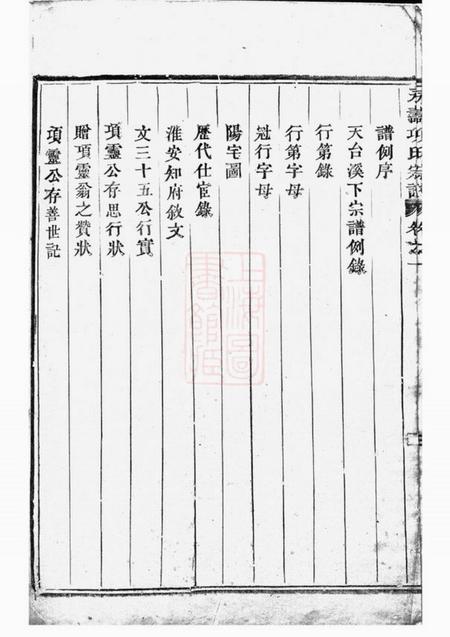 項氏宗譜 卷之一
譜例序
天台溪下宗譜例錄
行第錄
行第字母
冠行字母
陽宅圖
歷代仕宦錄
淮安知府敘文
文三十五公行實
項靈公存思行狀
贈項靈翁之贊狀
項靈公存善世記
上海圖書館藏